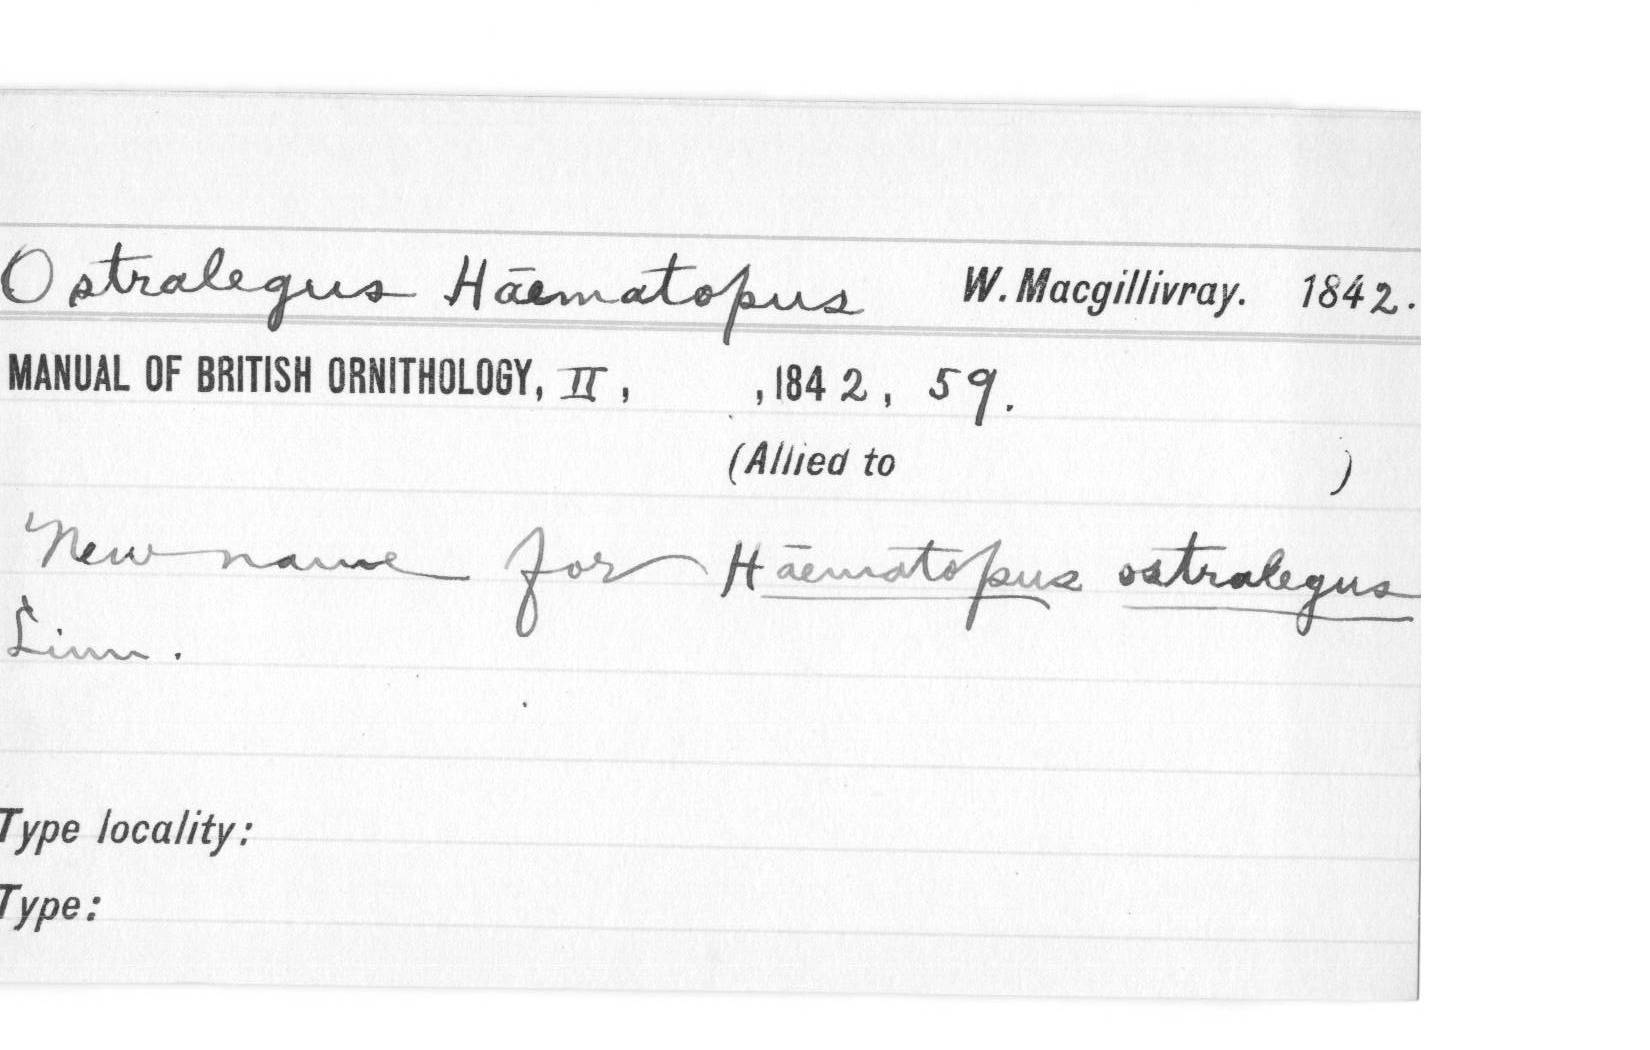 Ostralegus Hāematopus W. Macgillivray. 1842.
MANUAL OF BRITISH ORNITHOLOGY, II, , 1842, 59.
(Allied to )
New name for Hāematopus ostralegus
Linn.
Type locality:
Type: